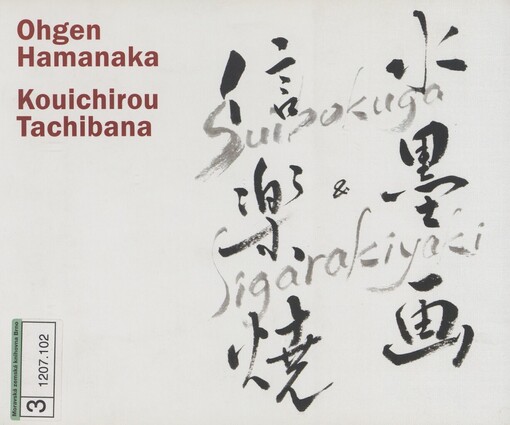 Ohgen
Hamanaka
Kouichirou
Tachibana
水墨画
&
信楽焼
Suibokuga
Sigarakiyaki
Moravská zemská knihovna Brno
3
1207.102